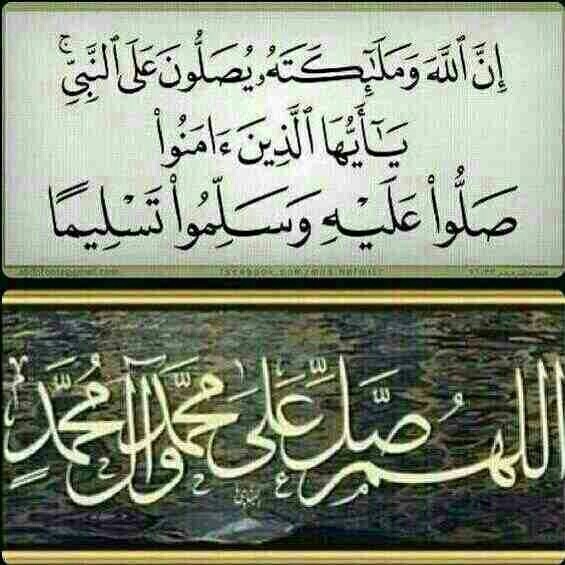 إِنَّ ٱللَّهَ وَمَلَٰٓئِكَتَهُۥ يُصَلُّونَ عَلَى ٱلنَّبِيِّ ۚ
يَٰٓأَيُّهَا ٱلَّذِينَ ءَامَنُوا۟
صَلُّوا۟ عَلَيْهِ وَسَلِّمُوا۟ تَسْلِيمًا
اللهم صَلِّ عَلَى مُحَمَّد وَآل مُحَمَّدٍ